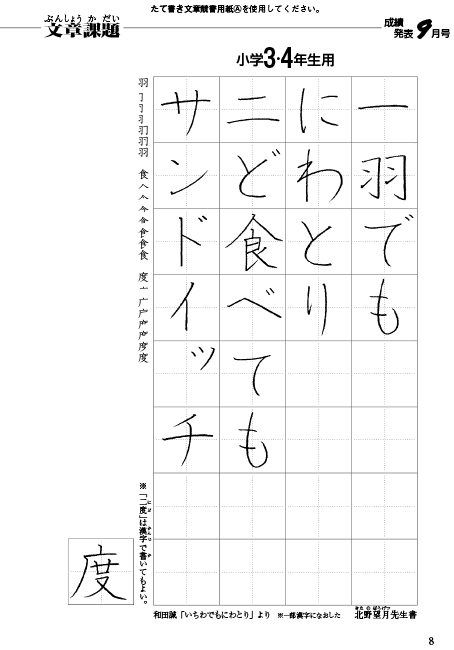 たて書き文章競書用紙Ⓐを使用してください。
ぶんしょうかだい
文章課題
成績
発表9月号
小学3・4年生用
一羽でも
にわとり
ニど食べても
サンドイッチ
羽
食
度
※「二度」は漢字で書いてもよい。
度
和田誠「いちわでもにわとり」より ※一部漢字になおした
北野望月先生書
8